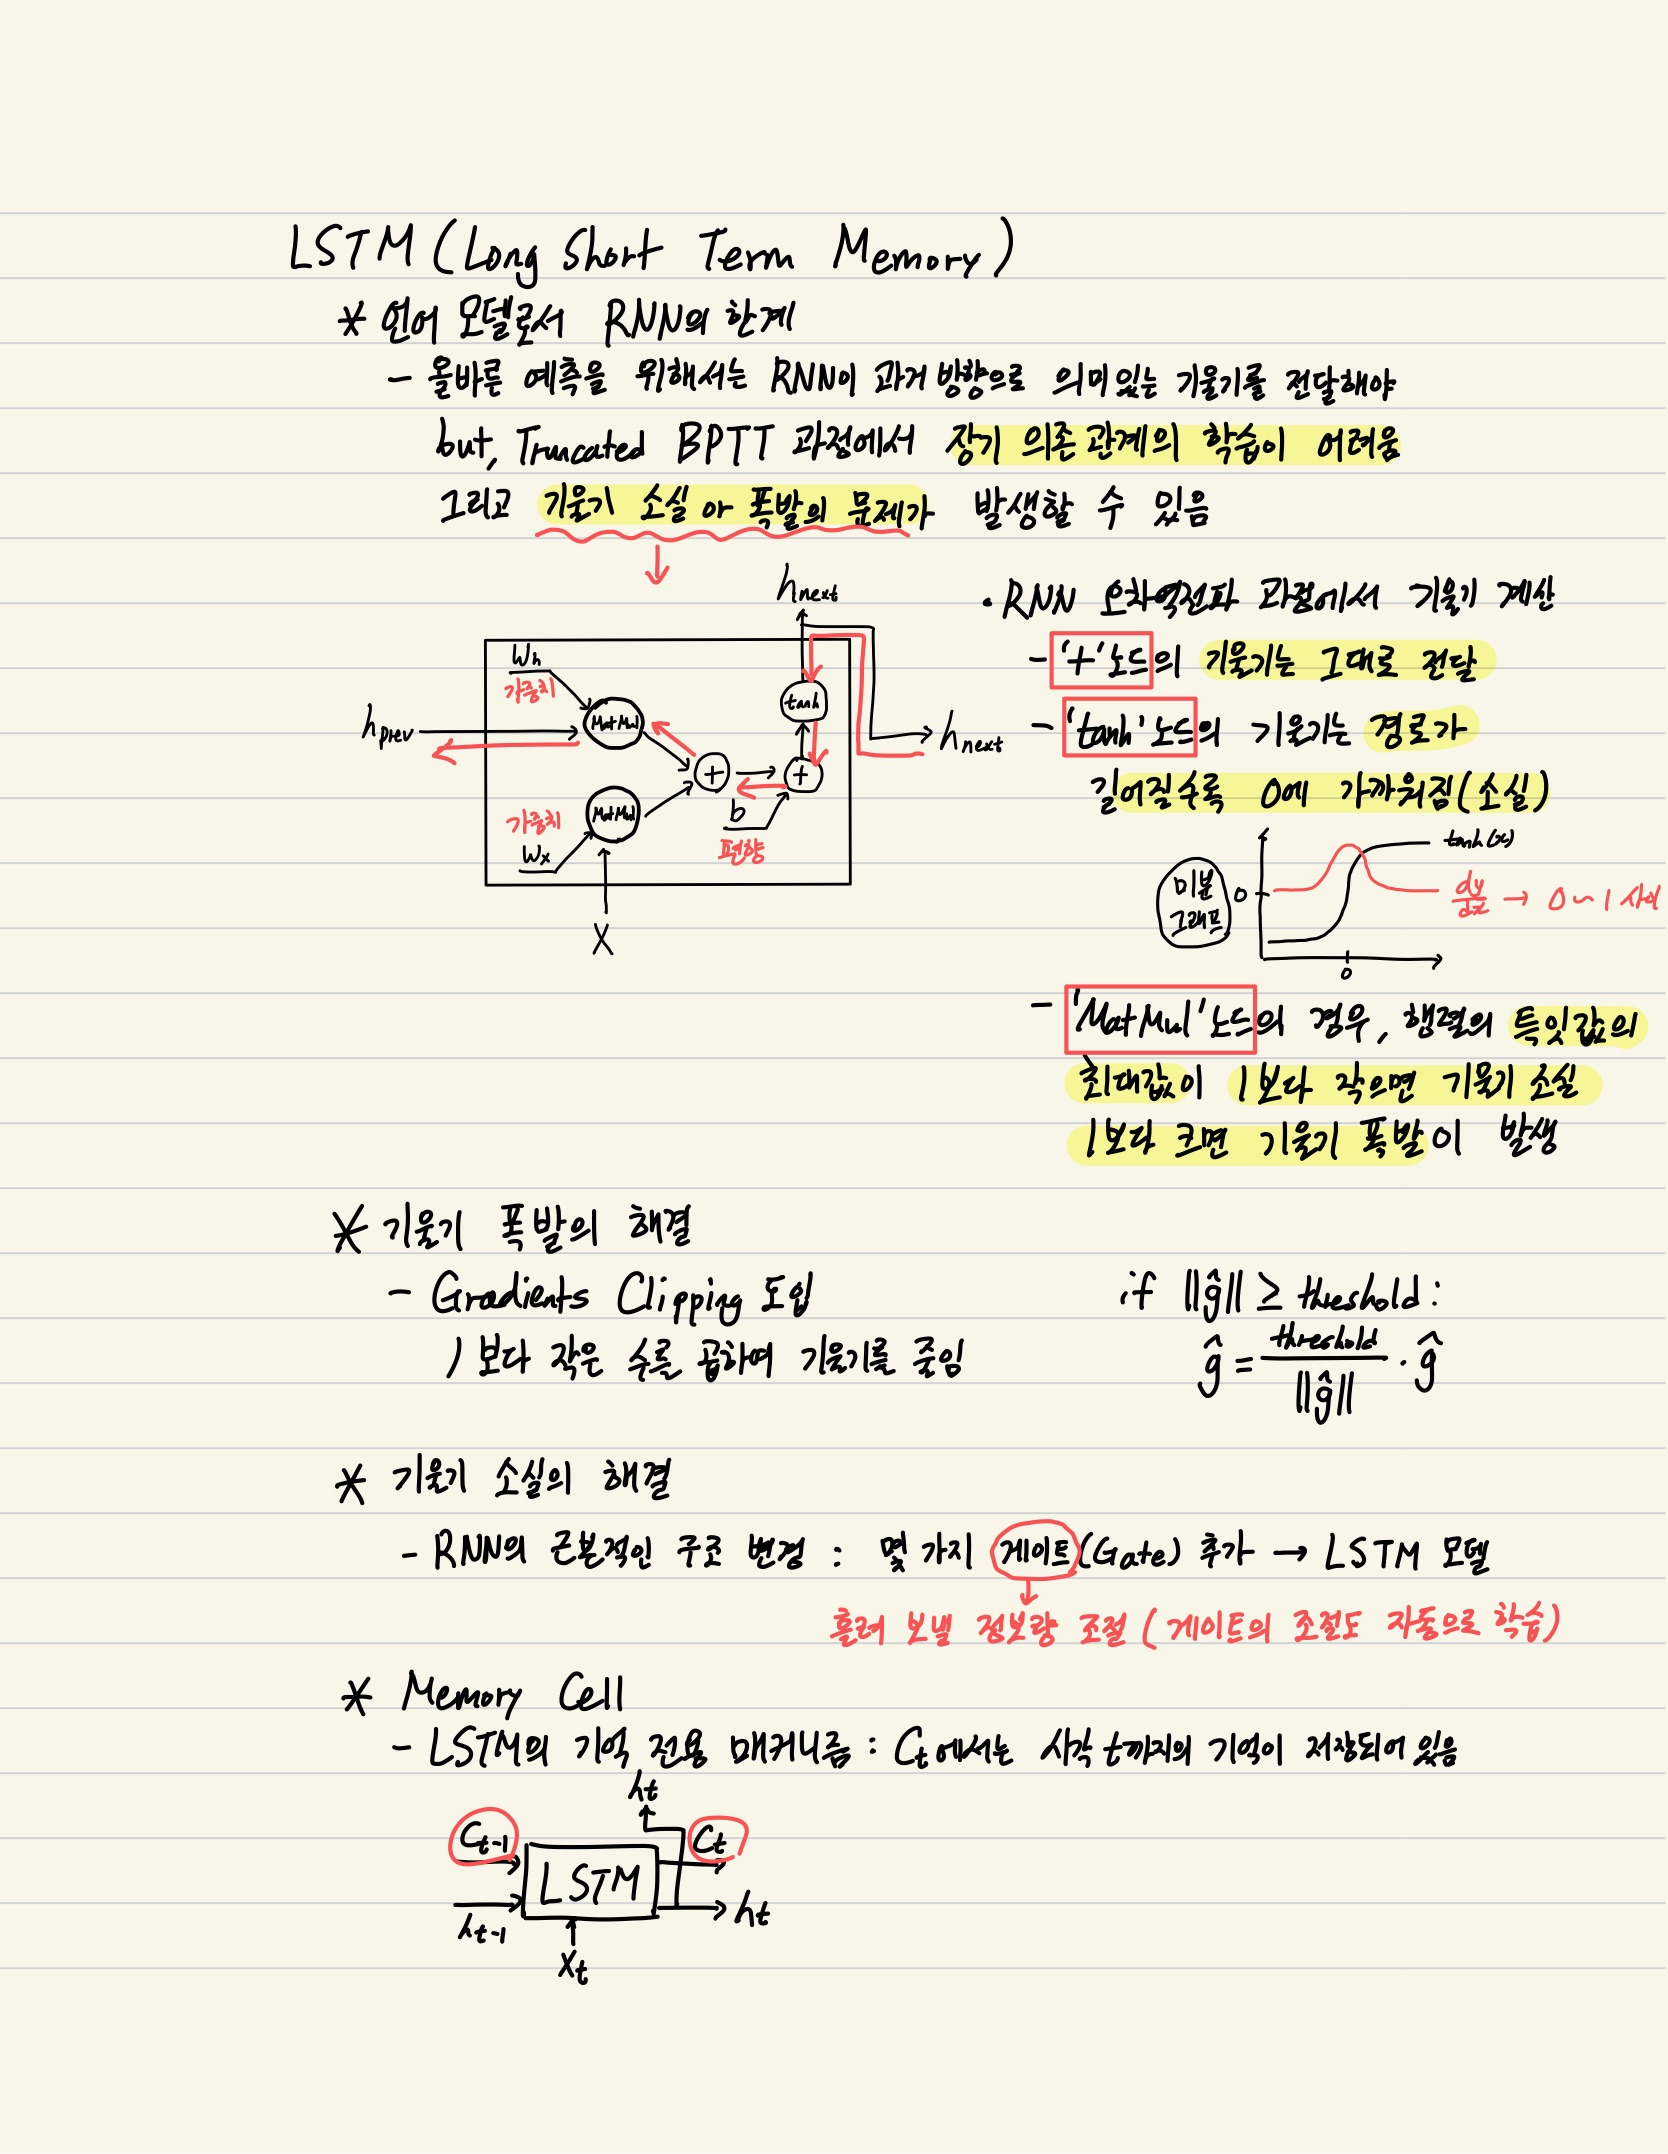 LSTM (Long Short Term Memory)
* 언어 모델로서 RNN의 한계
- 올바른 예측을 위해서는 RNN이 과거 방향으로 의미있는 기울기를 전달해야
but, Truncated BPTT 과정에서 장기 의존 관계의 학습이 어려움
그리고 기울기 소실 아 폭발의 문제가 발생할 수 있음
↓
h next
Wh
가중치
MatMul
tanh
h prev
h next
+
+
MatMul
b
가중치
편향
Wx
X
· RNN 오차역전파 과정에서 기울기 계산
- '+'노드의 기울기는 그대로 전달
- 'tanh'노드의 기울기는 경로가
길어질수록 0에 가까워짐(소실)
tanh(x)
미분
그래프
0
dy/dx → 0~1 사이
0
- 'MatMul'노드의 경우, 행렬의 특잇값의
최대값이 1보다 작으면 기울기 소실
1보다 크면 기울기 폭발이 발생
* 기울기 폭발의 해결
- Gradients Clipping 도입
1보다 작은 수를 곱하여 기울기를 줄임
if ||ĝ|| ≥ threshold:
ĝ = threshold/||ĝ|| · ĝ
* 기울기 소실의 해결
- RNN의 근본적인 구조 변경 : 몇 가지 게이트(Gate) 추가 → LSTM 모델
흘려 보낼 정보량 조절 (게이트의 조절도 자동으로 학습)
* Memory Cell
- LSTM의 기억 전용 매커니즘 : Ct에서는 시각 t까지의 기억이 저장되어 있음
ht
Ct-1
Ct
LSTM
ht-1
ht
Xt